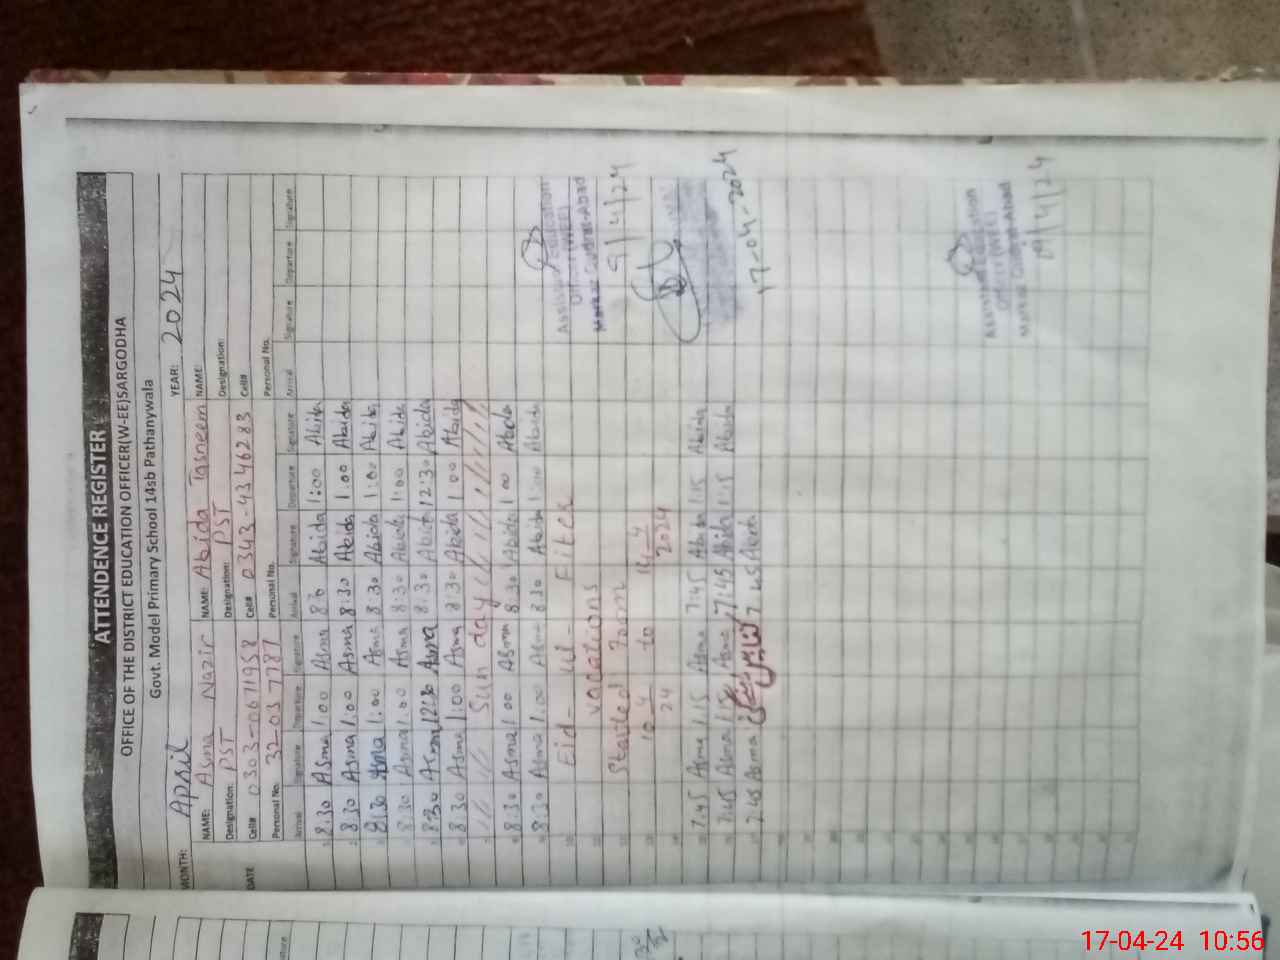 ATTENDENCE REGISTER
OFFICE OF THE DISTRICT EDUCATION OFFICER(W-EE)SARGODHA
Govt. Model Primary School 14sb Pathanywala
MONTH: April YEAR: 2024
NAME: Asma Nazir NAME: Abida Tasneem NAME:
Designation: PST Designation: PST Designation:
DATE Cell# 0303-0671958 Cell# 0343-4346283 Cell#
Personal No. 32037787 Personal No. Personal No.
Arrival Signature Departure Signature Arrival Signature Departure Signature Arrival Signature Departure Signature
8:30 Asma 1:00 Asma 8:30 Abida 1:00 Abida
8:30 Asma 1:00 Asma 8:30 Abida 1:00 Abida
8:30 Asma 1:00 Asma 8:30 Abida 1:00 Abida
8:30 Asma 1:00 Asma 8:30 Abida 1:00 Abida
8:30 Asma 12:30 Asma 8:30 Abida 12:30 Abida
8:30 Asma 1:00 Asma 8:30 Abida 1:00 Abida
Sunday
8:30 Asma 1:00 Asma 8:30 Abida 1:00 Abida
8:30 Asma 1:00 Asma 8:30 Abida 1:00 Abida
Eid-ul-Fiter
vacations
Started From
10 4 24 to 4 2024
9/4/24
7:45 Asma 1:15 Asma 7:45 Abida 1:15 Abida
7:45 Asma 1:15 Asma 7:45 Abida 1:15 Abida
7:45 Asma 7:45 Abida
17-04-2024
17-04-24 10:56